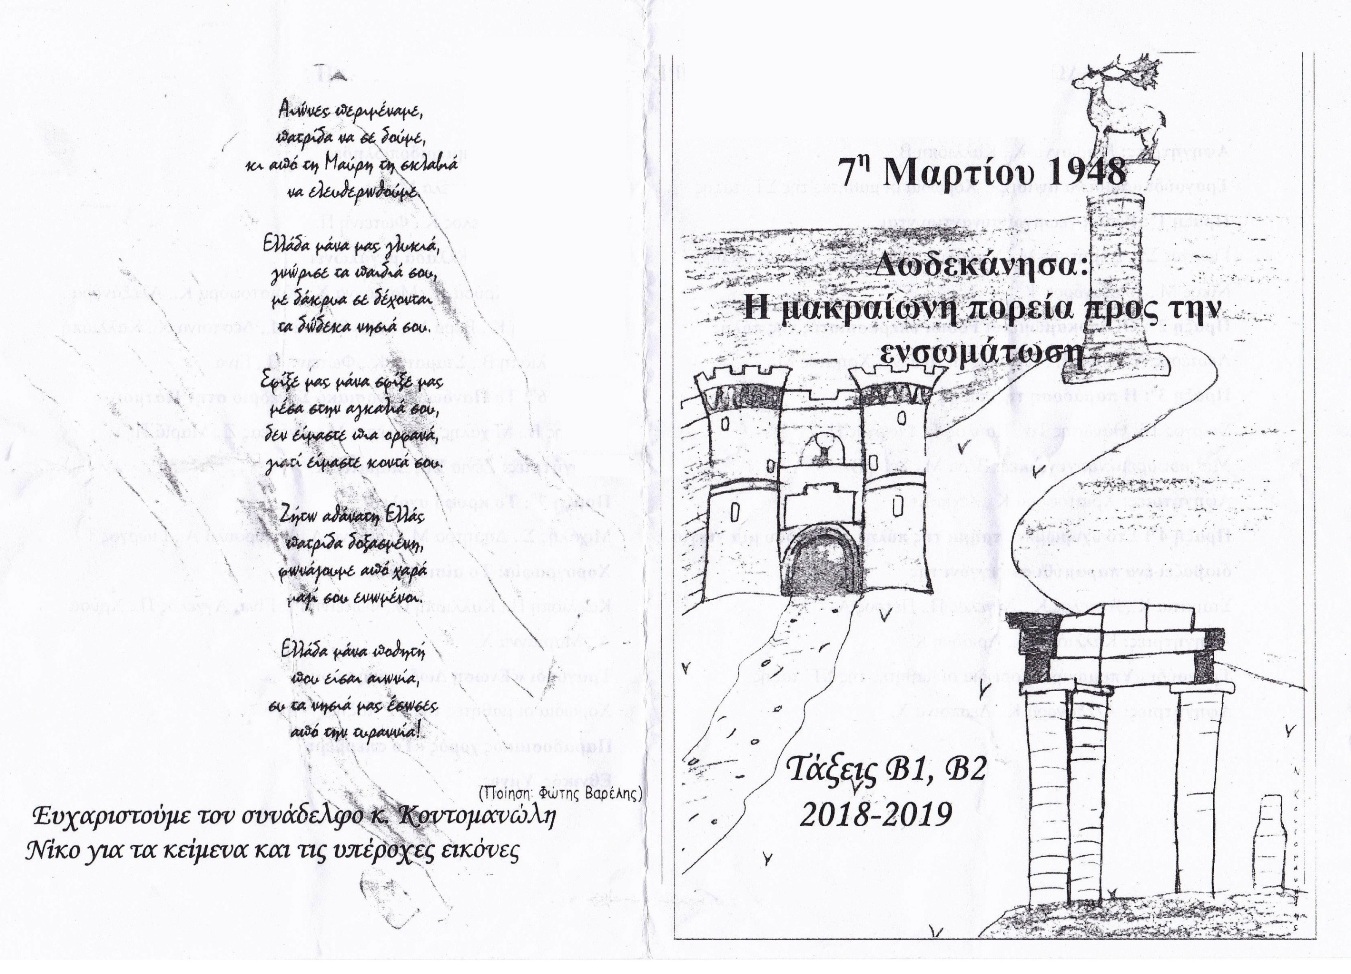 Αιώνες περιμέναμε,
πατρίδα να σε δούμε,
κι από τη Μαύρη τη σκλαβιά
να ελευθερωθούμε.
Ελλάδα μάνα μας γλυκιά,
γνώρισε τα παιδιά σου,
με δάκρυα σε δέχονται
τα δώδεκα νησιά σου.
Σφίξε μας μάνα σφίξε μας
μέσα στην αγκαλιά σου,
δεν είμαστε πια ορφανά,
γιατί είμαστε κοντά σου.
Ζήτω αθάνατη Ελλάς
πατρίδα δοξασμένη,
φωνάζουμε από χαρά
μαζί σου ενωμένοι.
Ελλάδα μάνα ποθητή
που είσαι αιωνία,
συ τα νησιά μας έσωσες
από την τυραννία!
(Ποίηση: Φώτης Βαρέλης)
Ευχαριστούμε τον συνάδελφο κ. Κοντομανώλη
Νίκο για τα κείμενα και τις υπέροχες εικόνες
7η Μαρτίου 1948
Δωδεκάνησα:
Η μακραίωνη πορεία προς την
ενσωμάτωση
Τάξεις Β1, Β2
2018-2019